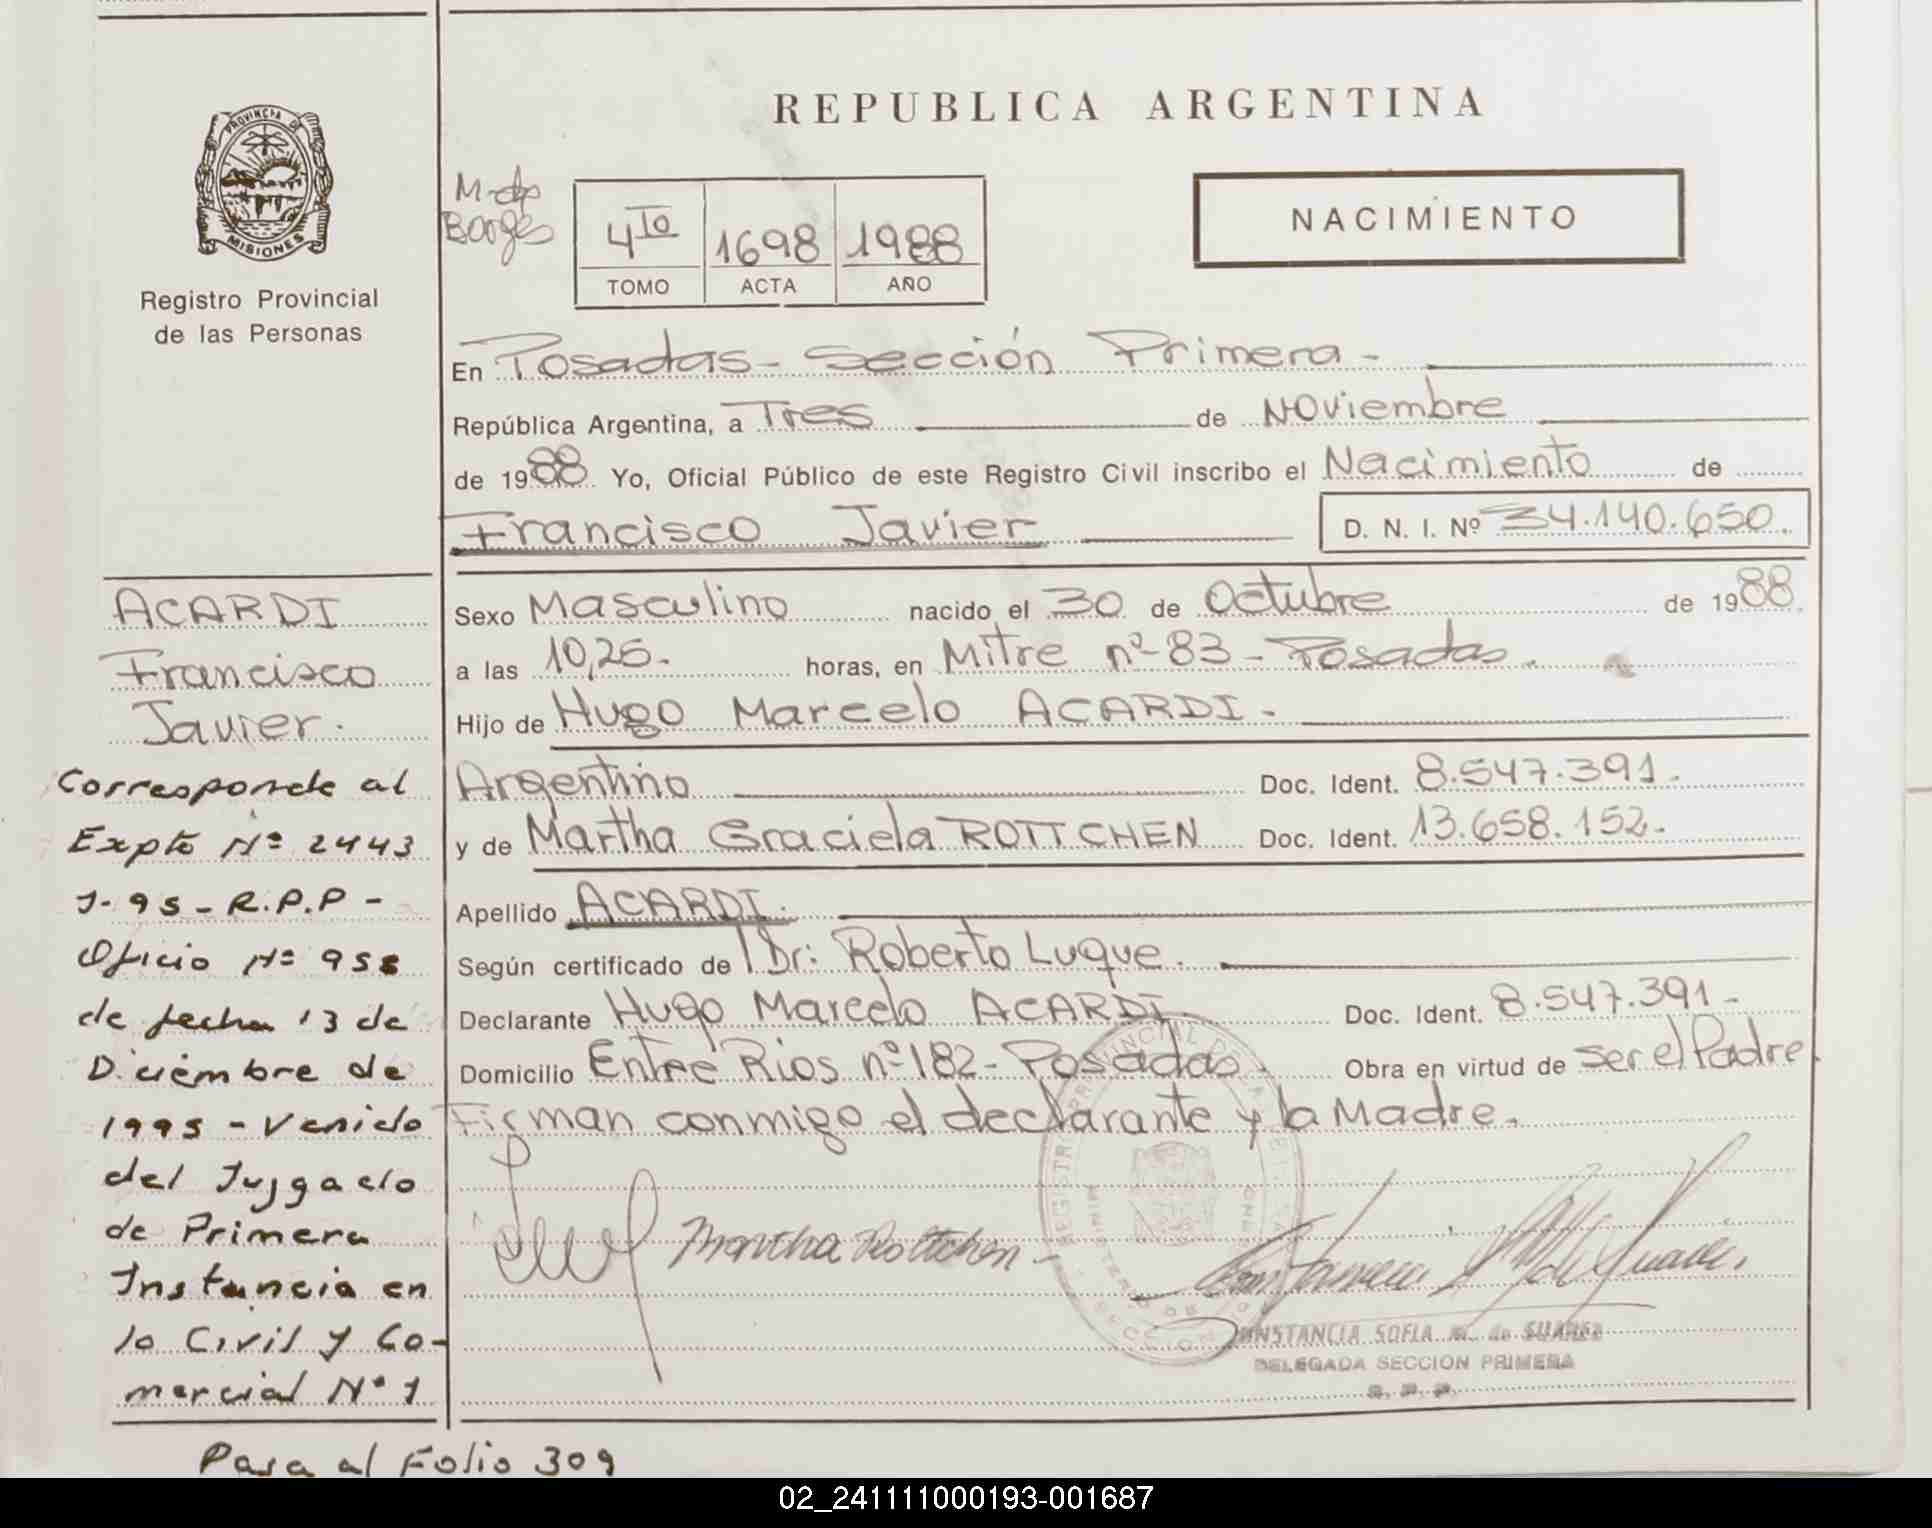 REPUBLICA ARGENTINA
PROVINCIA DE
MISIONES
Registro Provincial
de las Personas
M. de
Borges
4to 1698 1988
TOMO ACTA AÑO
NACIMIENTO
En Posadas - Sección Primera -
República Argentina, a Tres de Noviembre
de 1988 Yo, Oficial Público de este Registro Civil inscribo el Nacimiento de
Francisco Javier D. N. I. Nº 34.140.650.
ACARDI
Francisco
Javier.
Corresponde al
Expte Nº 2443
J-95-R.P.P-
Oficio Nº 955
de fecha 13 de
Diciembre de
1995 - Venido
del Juzgado
de Primera
Instancia en
lo Civil y Co-
mercial Nº 1
Sexo Masculino nacido el 30 de Octubre de 1988.
a las 10,25. horas, en Mitre nº 83 - Posadas.
Hijo de Hugo Marcelo ACARDI -
Argentino Doc. Ident. 8.547.391.
y de Martha Graciela ROTTCHEN Doc. Ident. 13.658.152.
Apellido ACARDI.
Según certificado de Dr: Roberto Luque.
Declarante Hugo Marcelo ACARDI Doc. Ident. 8.547.391-
Domicilio Entre Rios nº 182 - Posadas. Obra en virtud de ser el Padre.
Firman conmigo el declarante y la Madre.
Martha Rottchen -
CONSTANCIA SOFIA M. de SUAREZ
DELEGADA SECCION PRIMERA
R. P. P.
Pasa al Folio 309
02_241111000193-001687